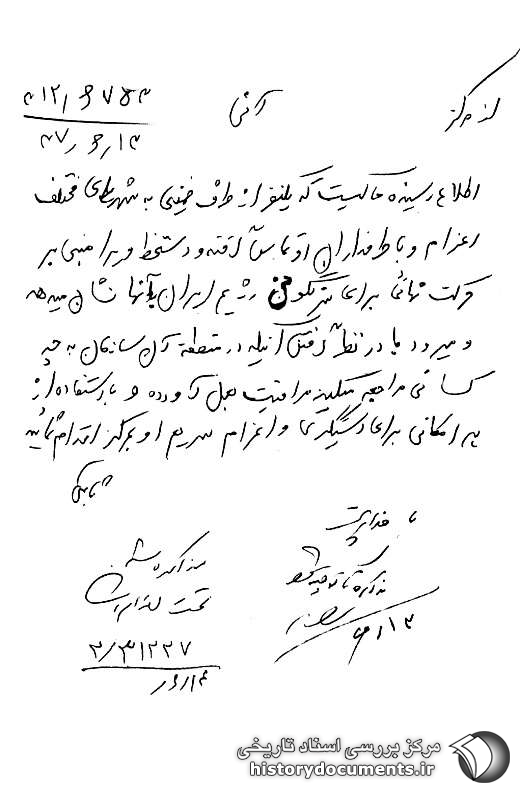 از مرکز آنی ۳۱۲/۶۷۵۳
۴۷٫۶٫۱۳
اطلاع رسیده حاکیست که یکنفر از طرف خمینی به شهرستانهای مختلف
اعزام و با طرفداران او تماس گرفته و دستخط ویرا مبنی بر
حرکت نهائی برای سرنگون رژیم ایران بآنها نشان میدهد
و میرود با در نظر گرفتن اینکه در منطقه آن سازمان به چه
کسانی مراجعه میکنند مراقبت بعمل آورده و با استفاده از
هر امکانی برای دستگیری و اعزام سریع او بمرکز اقدام نمائید
مذاکره شد
تحت
۳/۳۱۲۲۷
مرکز بررسی اسناد تاریخی
historydocuments.ir